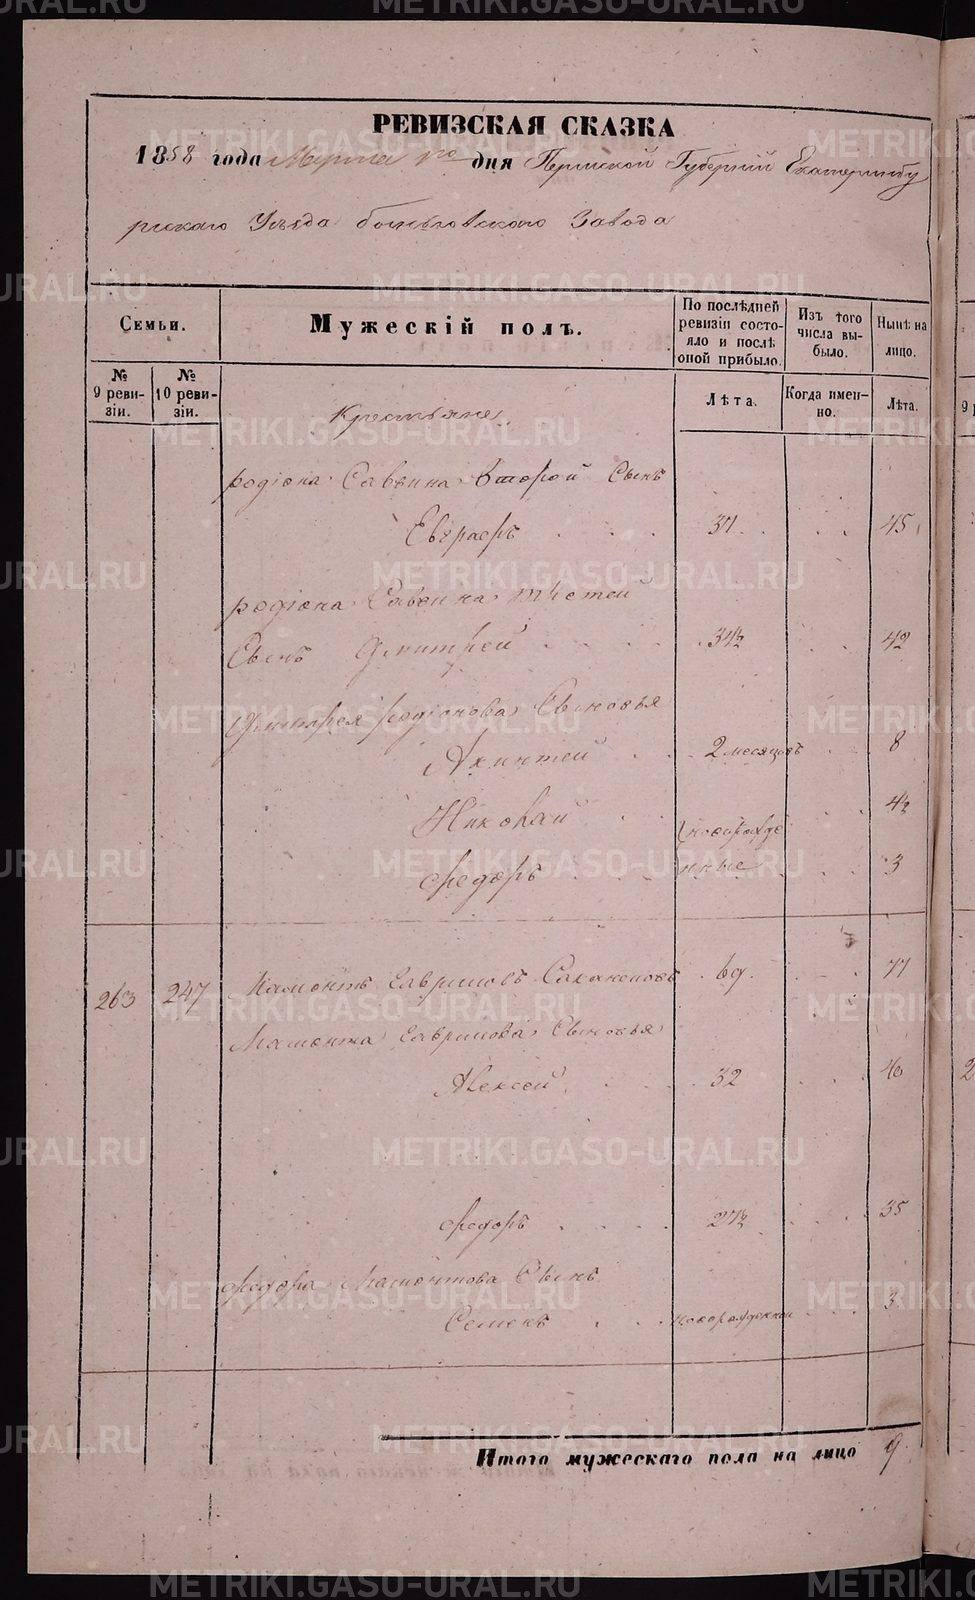 РЕВИЗСКАЯ СКАЗКА
1858 года Марта 1го дня Пермской Губернiй Екатеринбу
ргскаго Уъзда Завода
Семьи.
Мужескiй полъ.
По послѣдней ревизiи состояло и послѣ оной прибыло.
Изъ того числа выбыло.
Нынѣ на лицо.
№ 9 ревизiи.
№ 10 ревизiи.
Лѣта.
Когда именно.
Лѣта.
Крестьяне
родiона Савина Второй Сынъ
Евграфъ 37 45
родiона Савина третей
Сынъ Дмитрей 34½ 42
Дмитрея родiонова Сыновья
Акинтей 2 месяцовъ 8
Николай новорожде 4½
Федоръ нные 3
263 247 Мамонтъ Гавриловъ 69 77
Мамонта Гаврилова Сыновья
Алексей 32 40
Федоръ 27½ 35
Федора Мамонтова Сынъ
Семенъ новорожденный 3
Итого мужескаго пола на лицо 9
METRIKI.GASO-URAL.RU